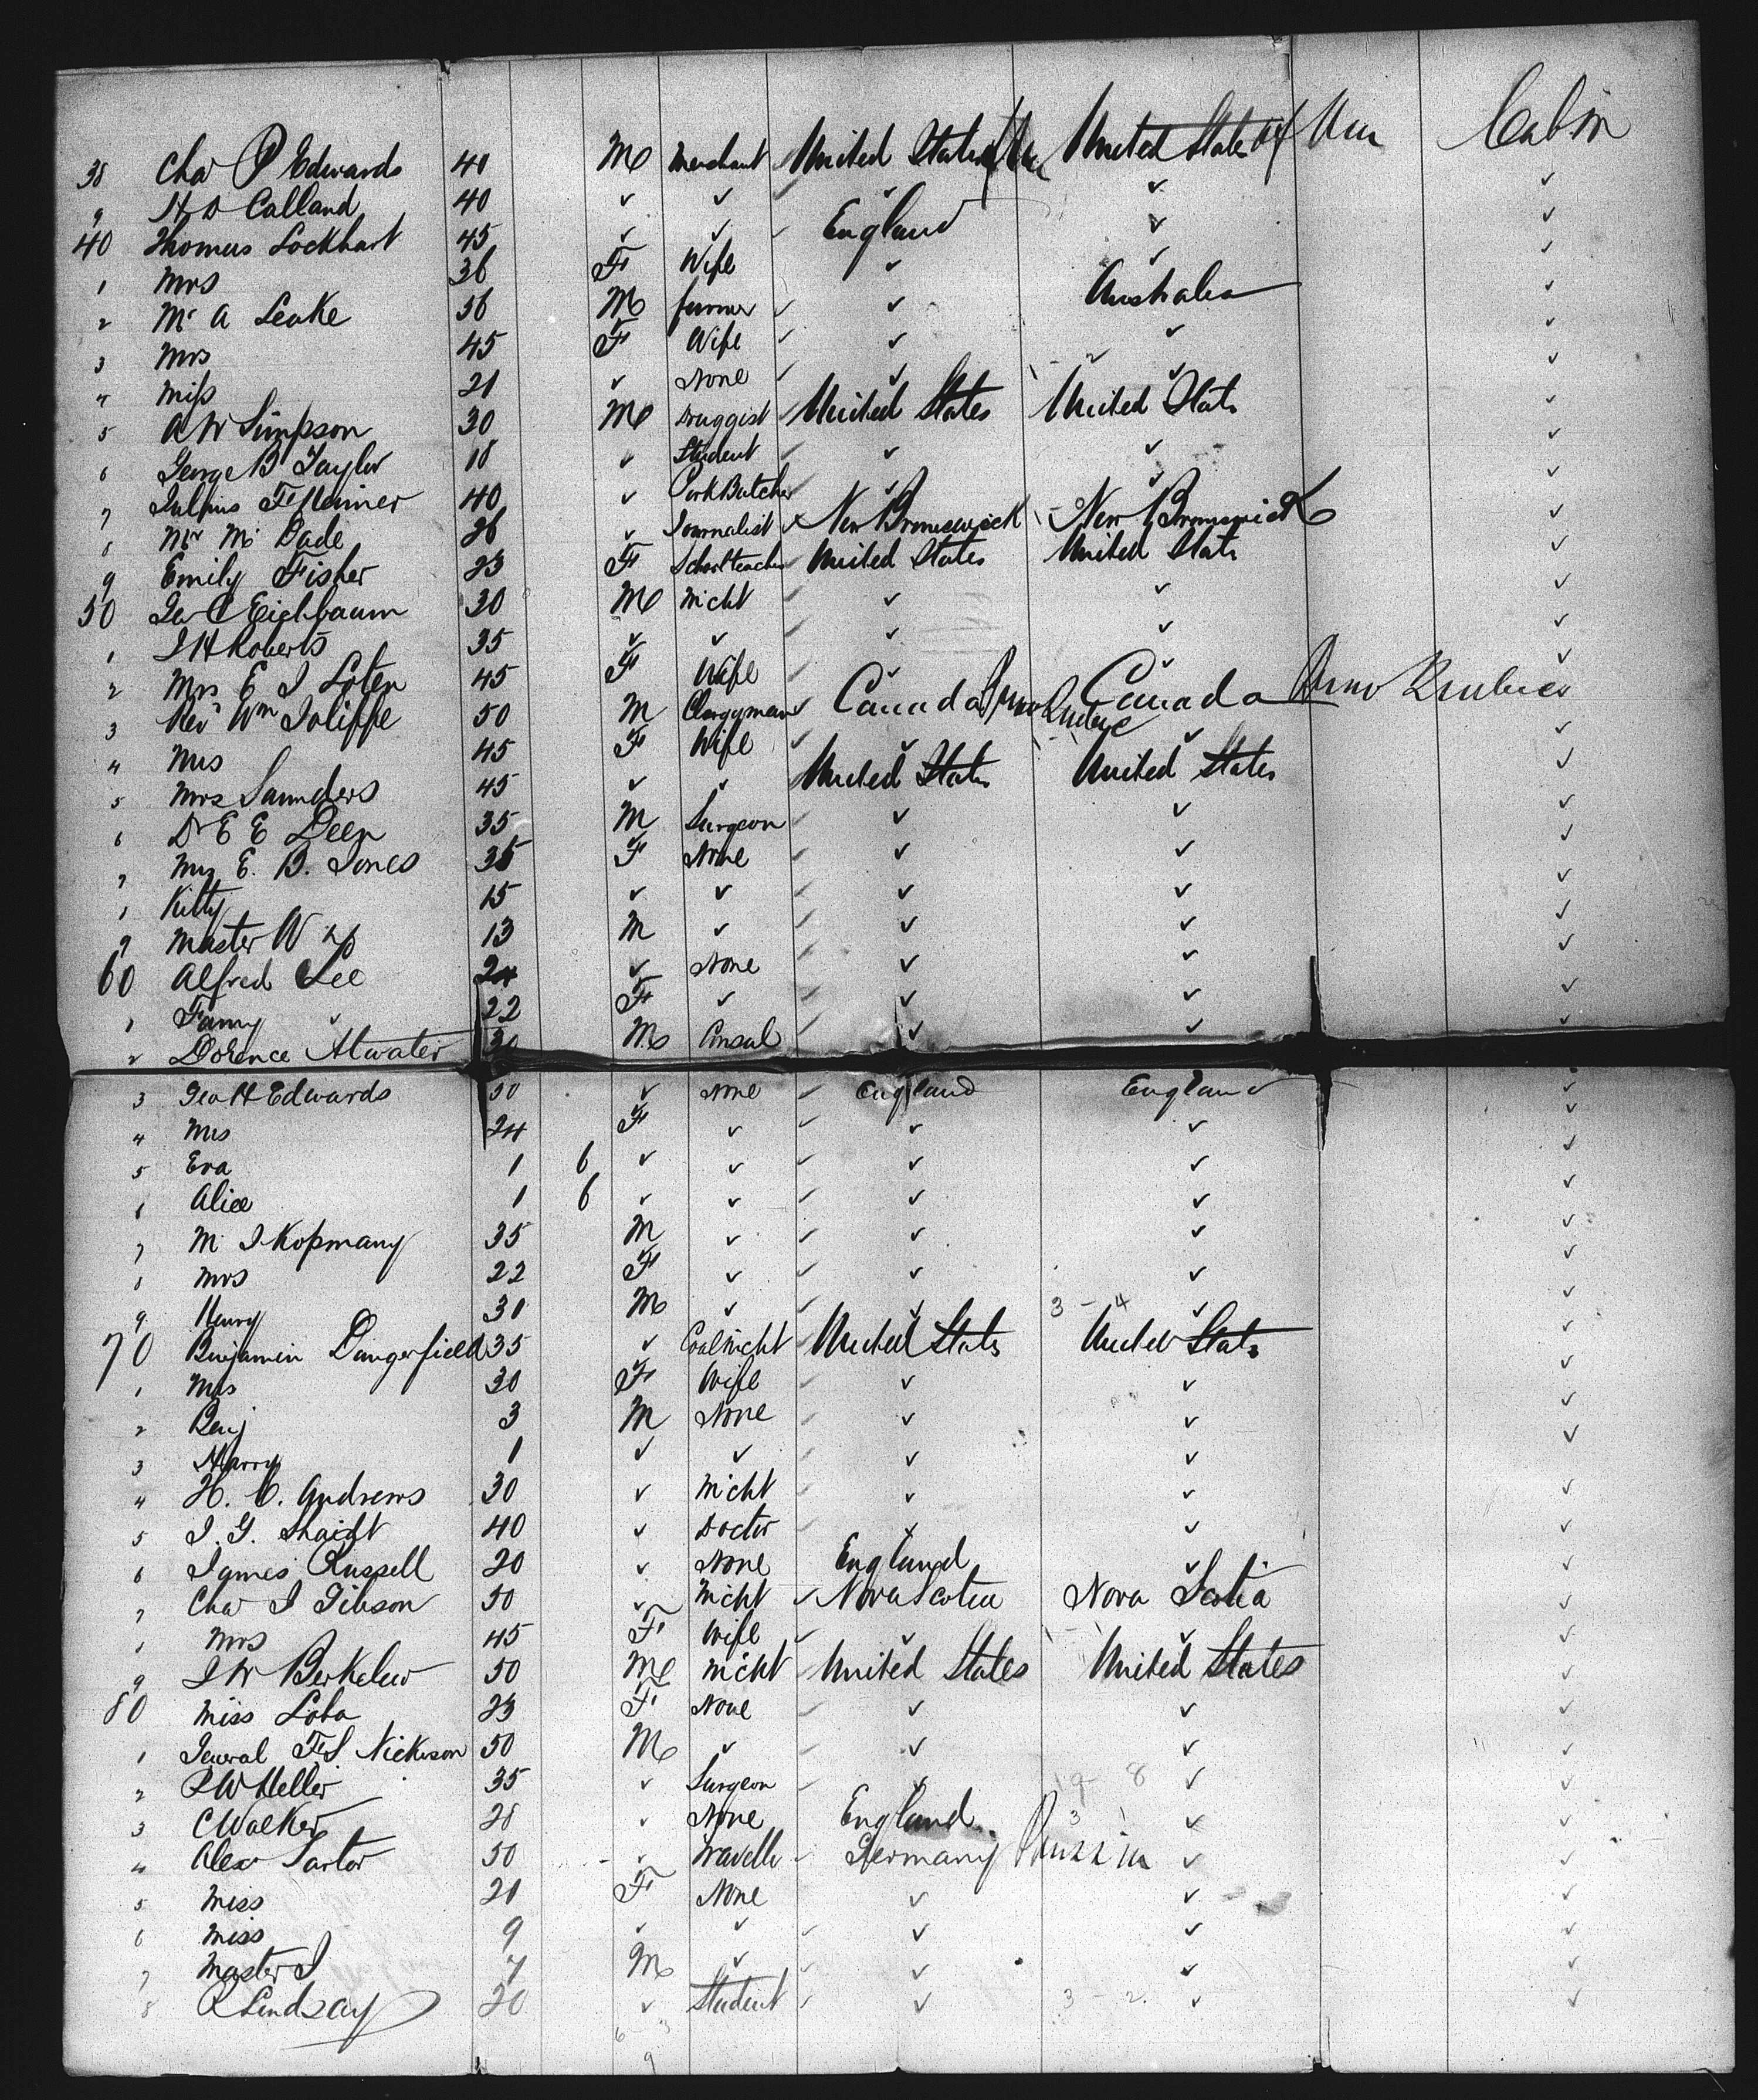 38 Chas P Edwards 40 M Merchant United States of Am United States of Am Cabin
9 H D Calland 40 ✓ ✓ ✓ ✓ ✓
40 Thomas Lockhart 45 ✓ ✓ England ✓ ✓
1 Mrs 36 F Wife ✓ ✓ ✓
2 Mr A Leake 56 M farmer ✓ Australia ✓
3 Mrs 45 F Wife ✓ ✓ ✓
4 Miss 21 ✓ None ✓ ✓ ✓
5 A W Simpson 30 M Druggist United States United States ✓
6 George B Taylor 18 ✓ Student ✓ ✓ ✓
7 Fleiner 40 ✓ Pork Butcher ✓ ✓ ✓
8 Mr Mc Dade 26 ✓ Journalist New Brunswick New Brunswick ✓
9 Emily Fisher 23 F Schoolteacher United States United States ✓
50 Eichbaum 30 M Mcht ✓ ✓ ✓
1 J H Roberts 35 ✓ ✓ ✓ ✓ ✓
2 Mrs E J Loten 45 F Wife ✓ ✓ ✓
3 Rev Wm Joliffe 50 M Clergyman Canada Quebec Canada Quebec
4 Mrs 45 F Wife ✓ ✓ ✓
5 Mrs Saunders 45 ✓ ✓ United States United States ✓
6 Dr E E Deen 35 M Surgeon ✓ ✓ ✓
7 Mrs E. B. Jones 35 F None ✓ ✓ ✓
8 Kitty 15 ✓ ✓ ✓ ✓ ✓
9 Master W 13 M ✓ ✓ ✓ ✓
60 Alfred Lee 24 ✓ None ✓ ✓ ✓
1 Fanny ✓ 22 F ✓ ✓ ✓ ✓
2 Dorence Atwater 30 M Consul ✓ ✓ ✓
3 Geo H Edwards 30 ✓ None England England ✓
4 Mrs 24 F ✓ ✓ ✓ ✓
5 Eva 1 6 ✓ ✓ ✓ ✓ ✓
6 Alice 1 6 ✓ ✓ ✓ ✓ ✓
7 M. J Kopmany 35 M ✓ ✓ ✓ ✓
8 Mrs 22 F ✓ ✓ ✓ ✓
9 Henry 30 M ✓ ✓ 3 - 4 ✓ ✓
70 Benjamin Dangerfield 35 ✓ Coal Mcht United States United States ✓
1 Mrs 30 F Wife ✓ ✓ ✓
2 Benj 3 M None ✓ ✓ ✓
3 Harry 1 ✓ ✓ ✓ ✓ ✓
4 H. C. Andrews 30 ✓ Mcht ✓ ✓ ✓
5 J. G. 40 ✓ Doctor ✓ ✓ ✓
6 James Russell 20 ✓ None England ✓ ✓
7 Chas J Gibson 50 ✓ Mcht Nova Scotia Nova Scotia ✓
8 Mrs 45 F Wife ✓ ✓ ✓
9 J W Berkelew 50 M Mcht United States United States ✓
80 Miss Loba 23 F None ✓ ✓ ✓
1 General F S Nickerson 50 M ✓ ✓ ✓ ✓
2 R W Heller 35 ✓ Surgeon ✓ 19 - 8 ✓ ✓
3 C Walker 28 ✓ None England 3 1 ✓ ✓
4 Alex Sartor 50 ✓ Traveller Germany Prussia ✓ ✓
5 Miss 21 F None ✓ ✓ ✓
6 Miss 9 ✓ ✓ ✓ ✓ ✓
7 Master J 7 M ✓ ✓ ✓ ✓
8 R Lindsay 20 ✓ Student ✓ 3 - 2 ✓ ✓
6 - 3
9